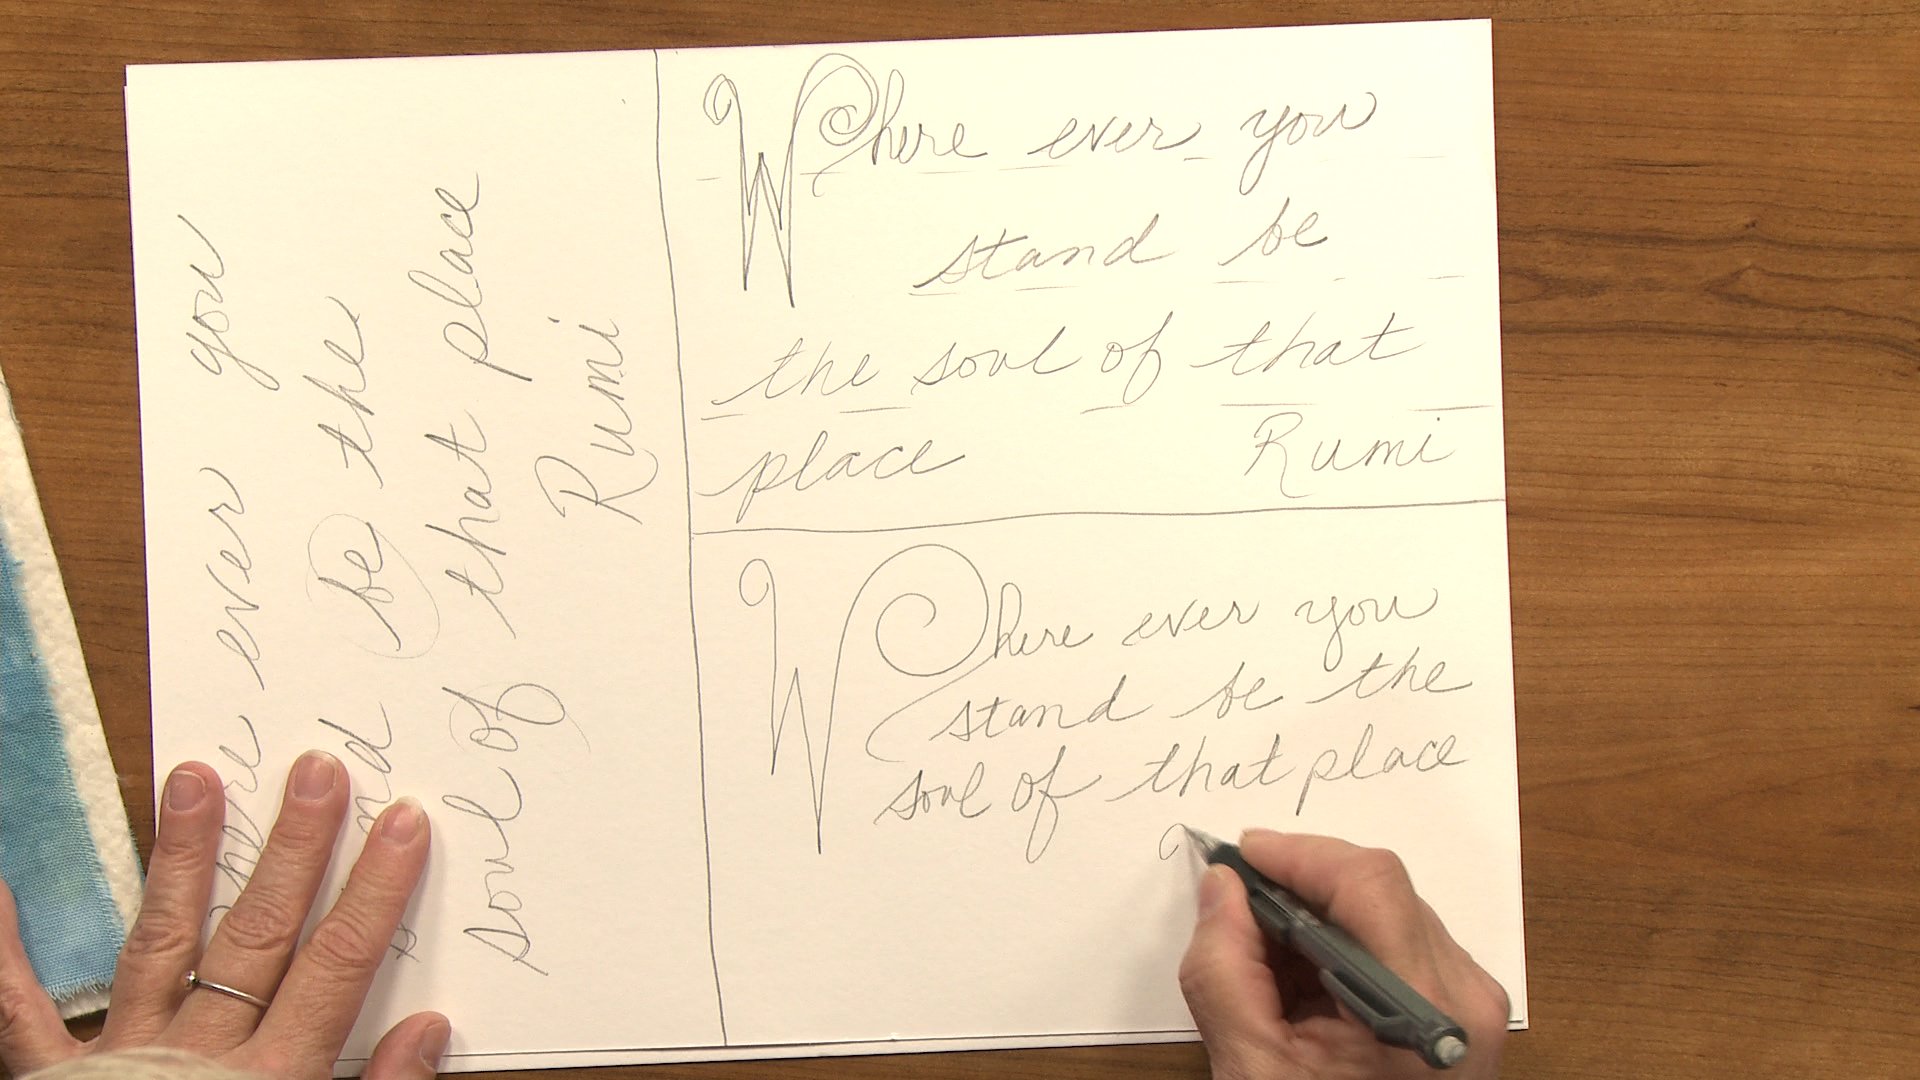 here ever you
nd be the
soul of that place
Rumi
Where ever you
stand be
the soul of that
place Rumi
Where ever you
stand be the
soul of that place